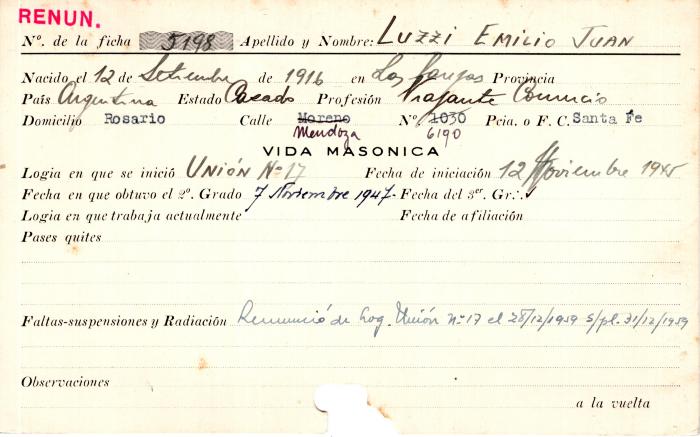 RENUN.
Nº. de la ficha 5198 Apellido y Nombre: LUZZI EMILIO JUAN
Nacido el 12 de Setiembre de 1916 en Las Parejas Provincia
País Argentina Estado Casado Profesión Viajante Comercio
Domicilio Rosario Calle Moreno Nº 1030 Pcia. o F. C. Santa Fe
Mendoza 6190
VIDA MASONICA
Logia en que se inició UNIÓN Nº 17 Fecha de iniciación 12 Noviembre 1945
Fecha en que obtuvo el 2º. Grado 7 Noviembre 1947- Fecha del 3er. Gr.
Logia en que trabaja actualmente Fecha de afiliación
Pases quites
Faltas-suspensiones y Radiación Renunció de Log. Unión nº 17 el 28/12/1959 s/pl. 31/12/1959
Observaciones
a la vuelta